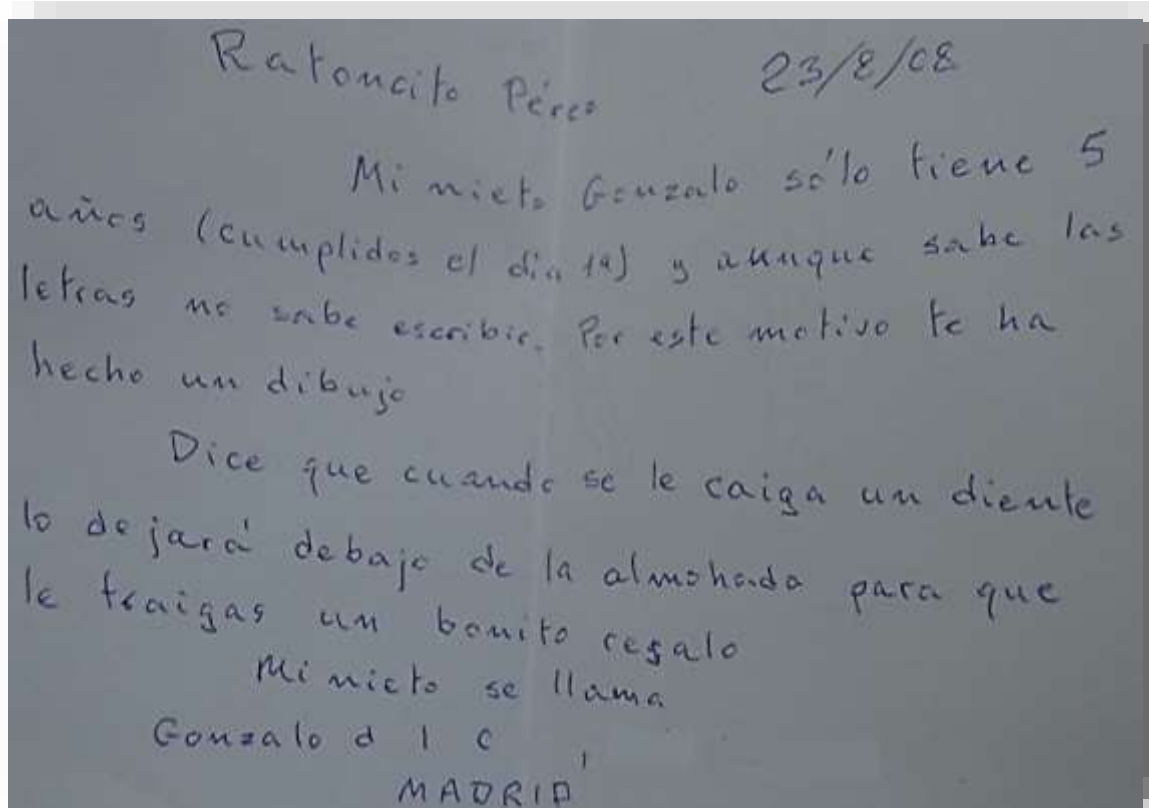 Ratoncito Pérez 23/8/08
Mi nieto Gonzalo sólo tiene 5
años (cumplidos el día 19) y aunque sabe las
letras no sabe escribir. Por este motivo te ha
hecho un dibujo
Dice que cuando se le caiga un diente
lo dejará debajo de la almohada para que
le traigas un bonito regalo
Mi nieto se llama
Gonzalo d l C
MADRID